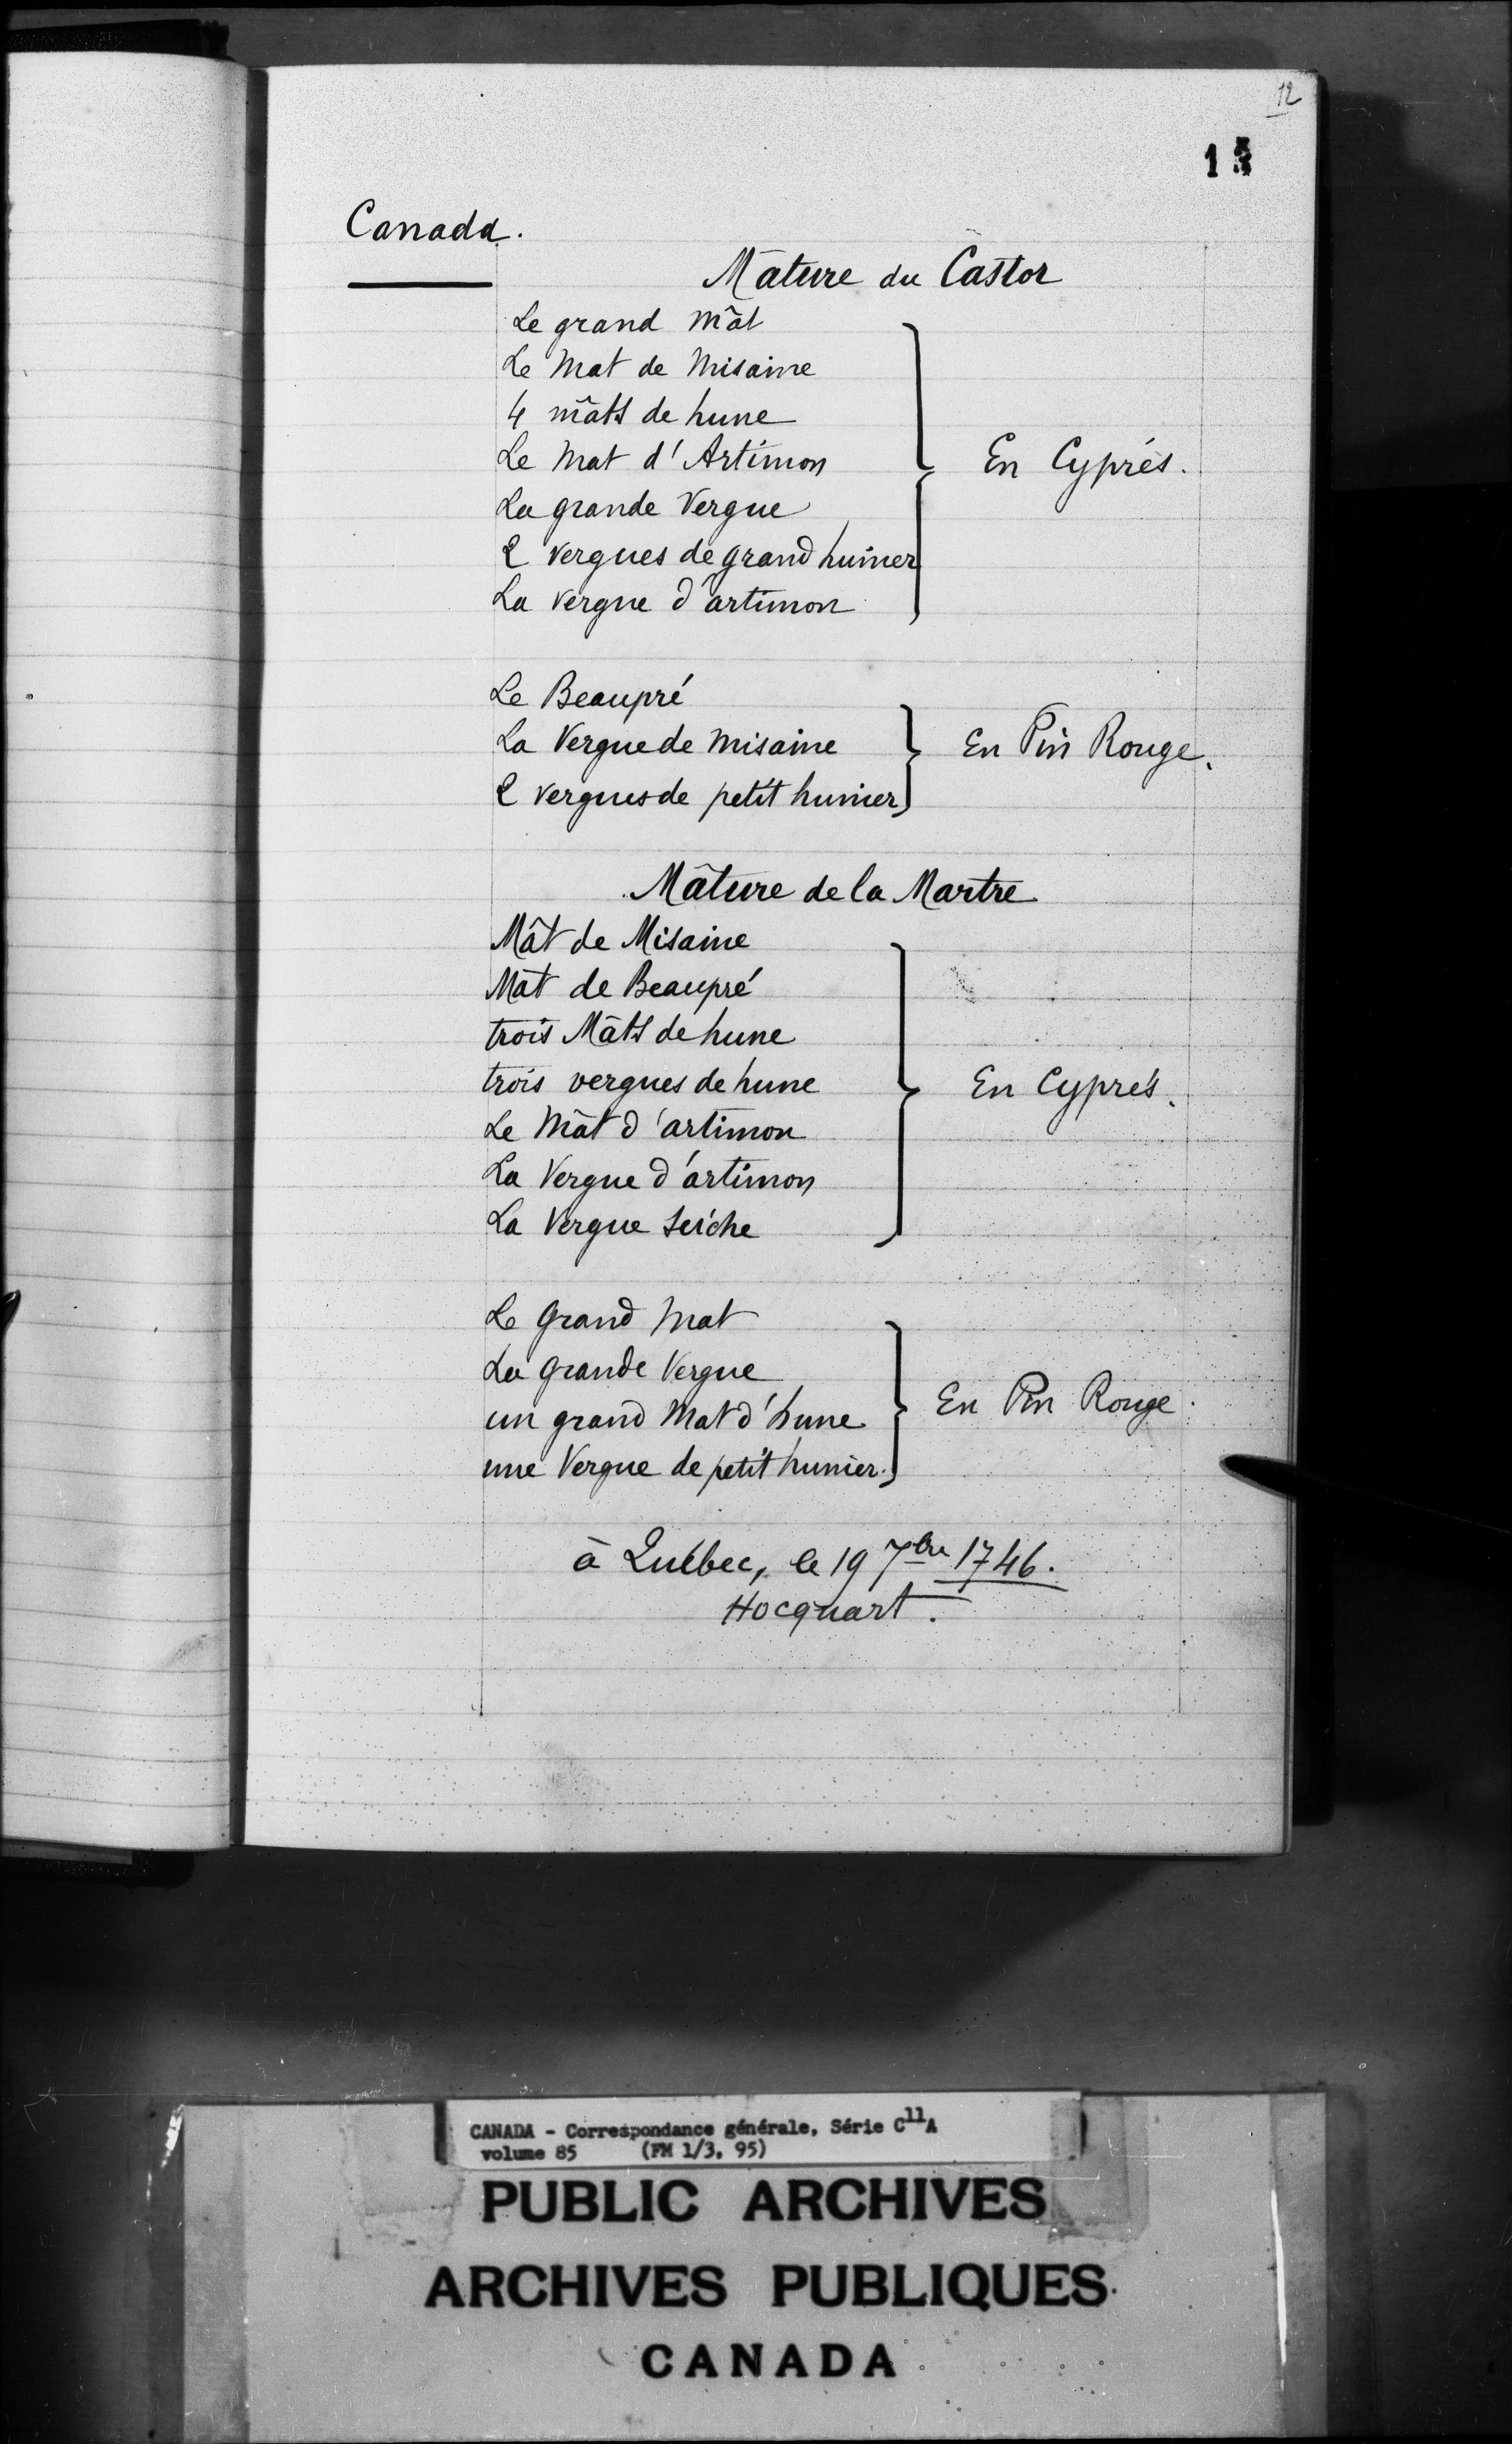 12
Canada.
Mâture du Castor
Le grand mât
Le Mat de Misaine
4 mâts de hune
Le Mat d'Artimon
En Cyprés.
La grande Vergue
2 vergues de grand hunier
La vergue d'artimon
Le Beaupré
La Vergue de misaine
En Pin Rouge.
2 vergues de petit hunier
Mâture de la Martre
Mât de Misaine
Mât de Beaupré
trois Mâts de hune
trois vergues de hune
En Cyprés.
Le Mât d'artimon
La Vergue d'artimon
La Vergue seiche
Le Grand Mat
La Grande Vergue
un grand Mat d'hune
En Pin Rouge.
une Vergue de petit hunier.
à Québec, le 19 7bre 1746.
Hocquart.
CANADA - Correspondance générale, Série C11A
volume 85 (FM 1/3, 95)
PUBLIC ARCHIVES
ARCHIVES PUBLIQUES
CANADA